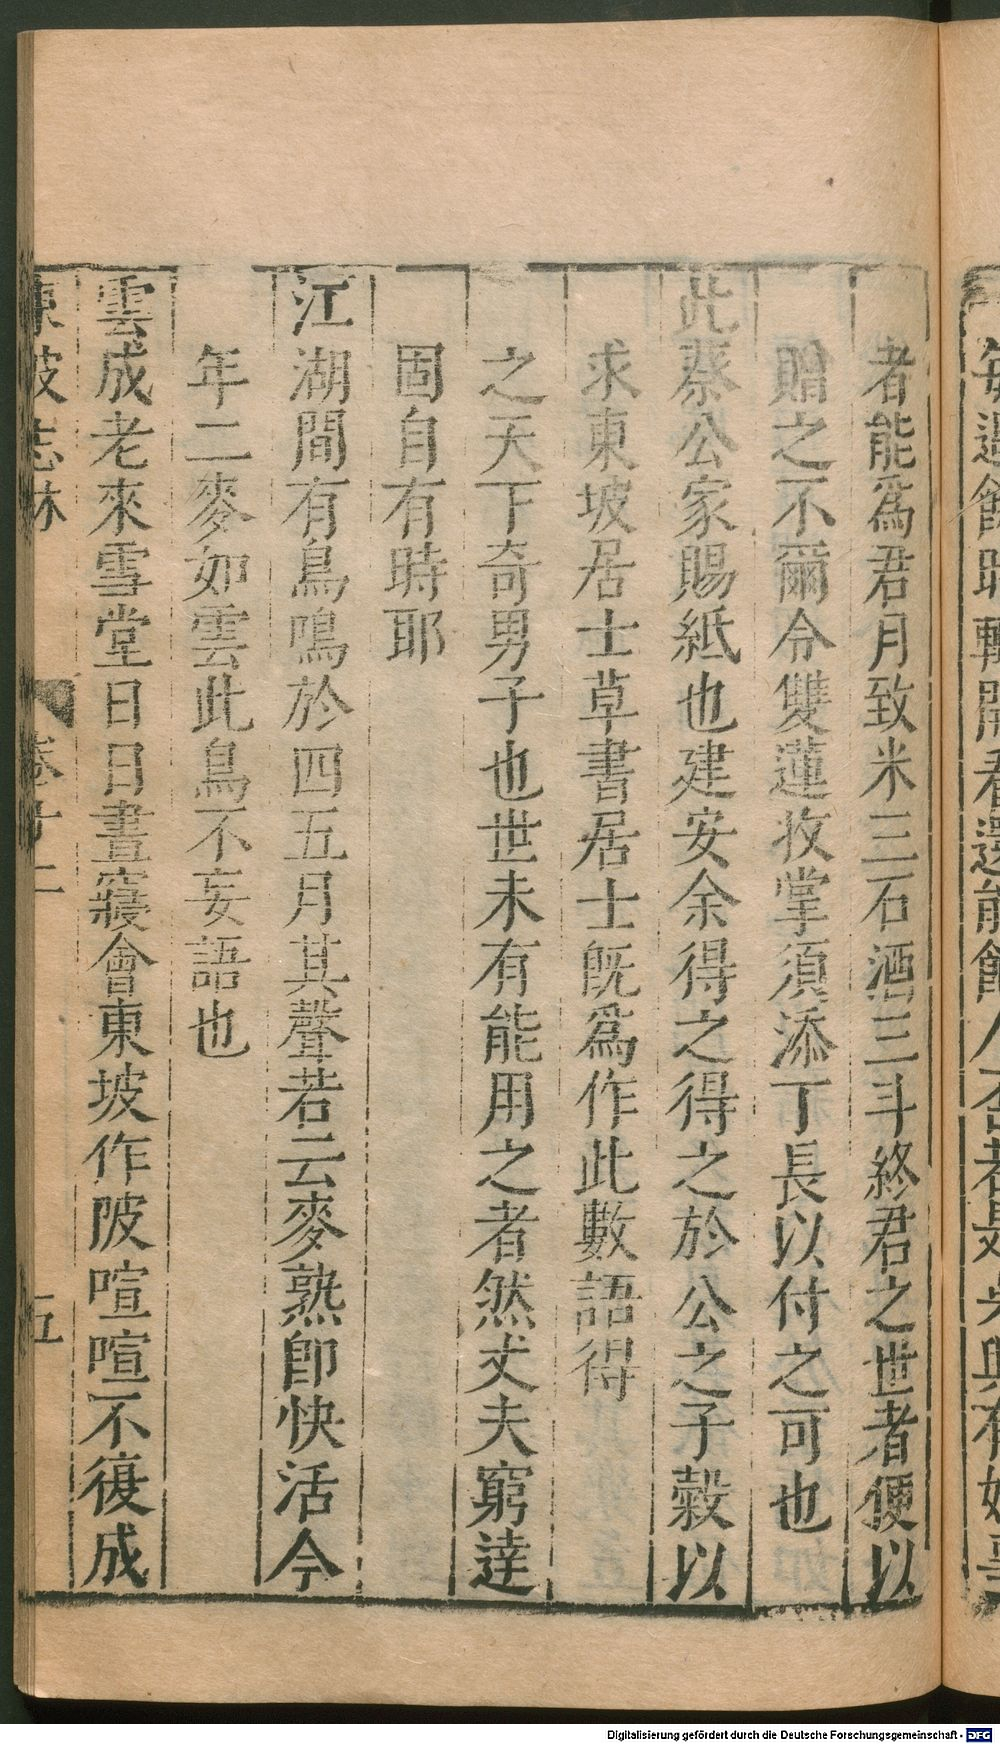 者能爲君月致米三石酒三斗終君之世者便以
贈之不爾令雙蓮收掌須添丁長以付之可也
此蔡公家賜紙也建安余得之得之於公之子榖以
求東坡居士草書居士旣爲作此數語得
之天下奇男子也世未有能用之者然丈夫窮達
固自有時耶
江湖間有鳥鳴於四五月其聲若云麥熟卽快活今
年二麥如雲此鳥不妄語也
雲成老來雪堂日日晝寢會東坡作陂喧喧不復成
東坡志林 卷十二 五
Digitalisierung gefördert durch die Deutsche Forschungsgemeinschaft - DFG